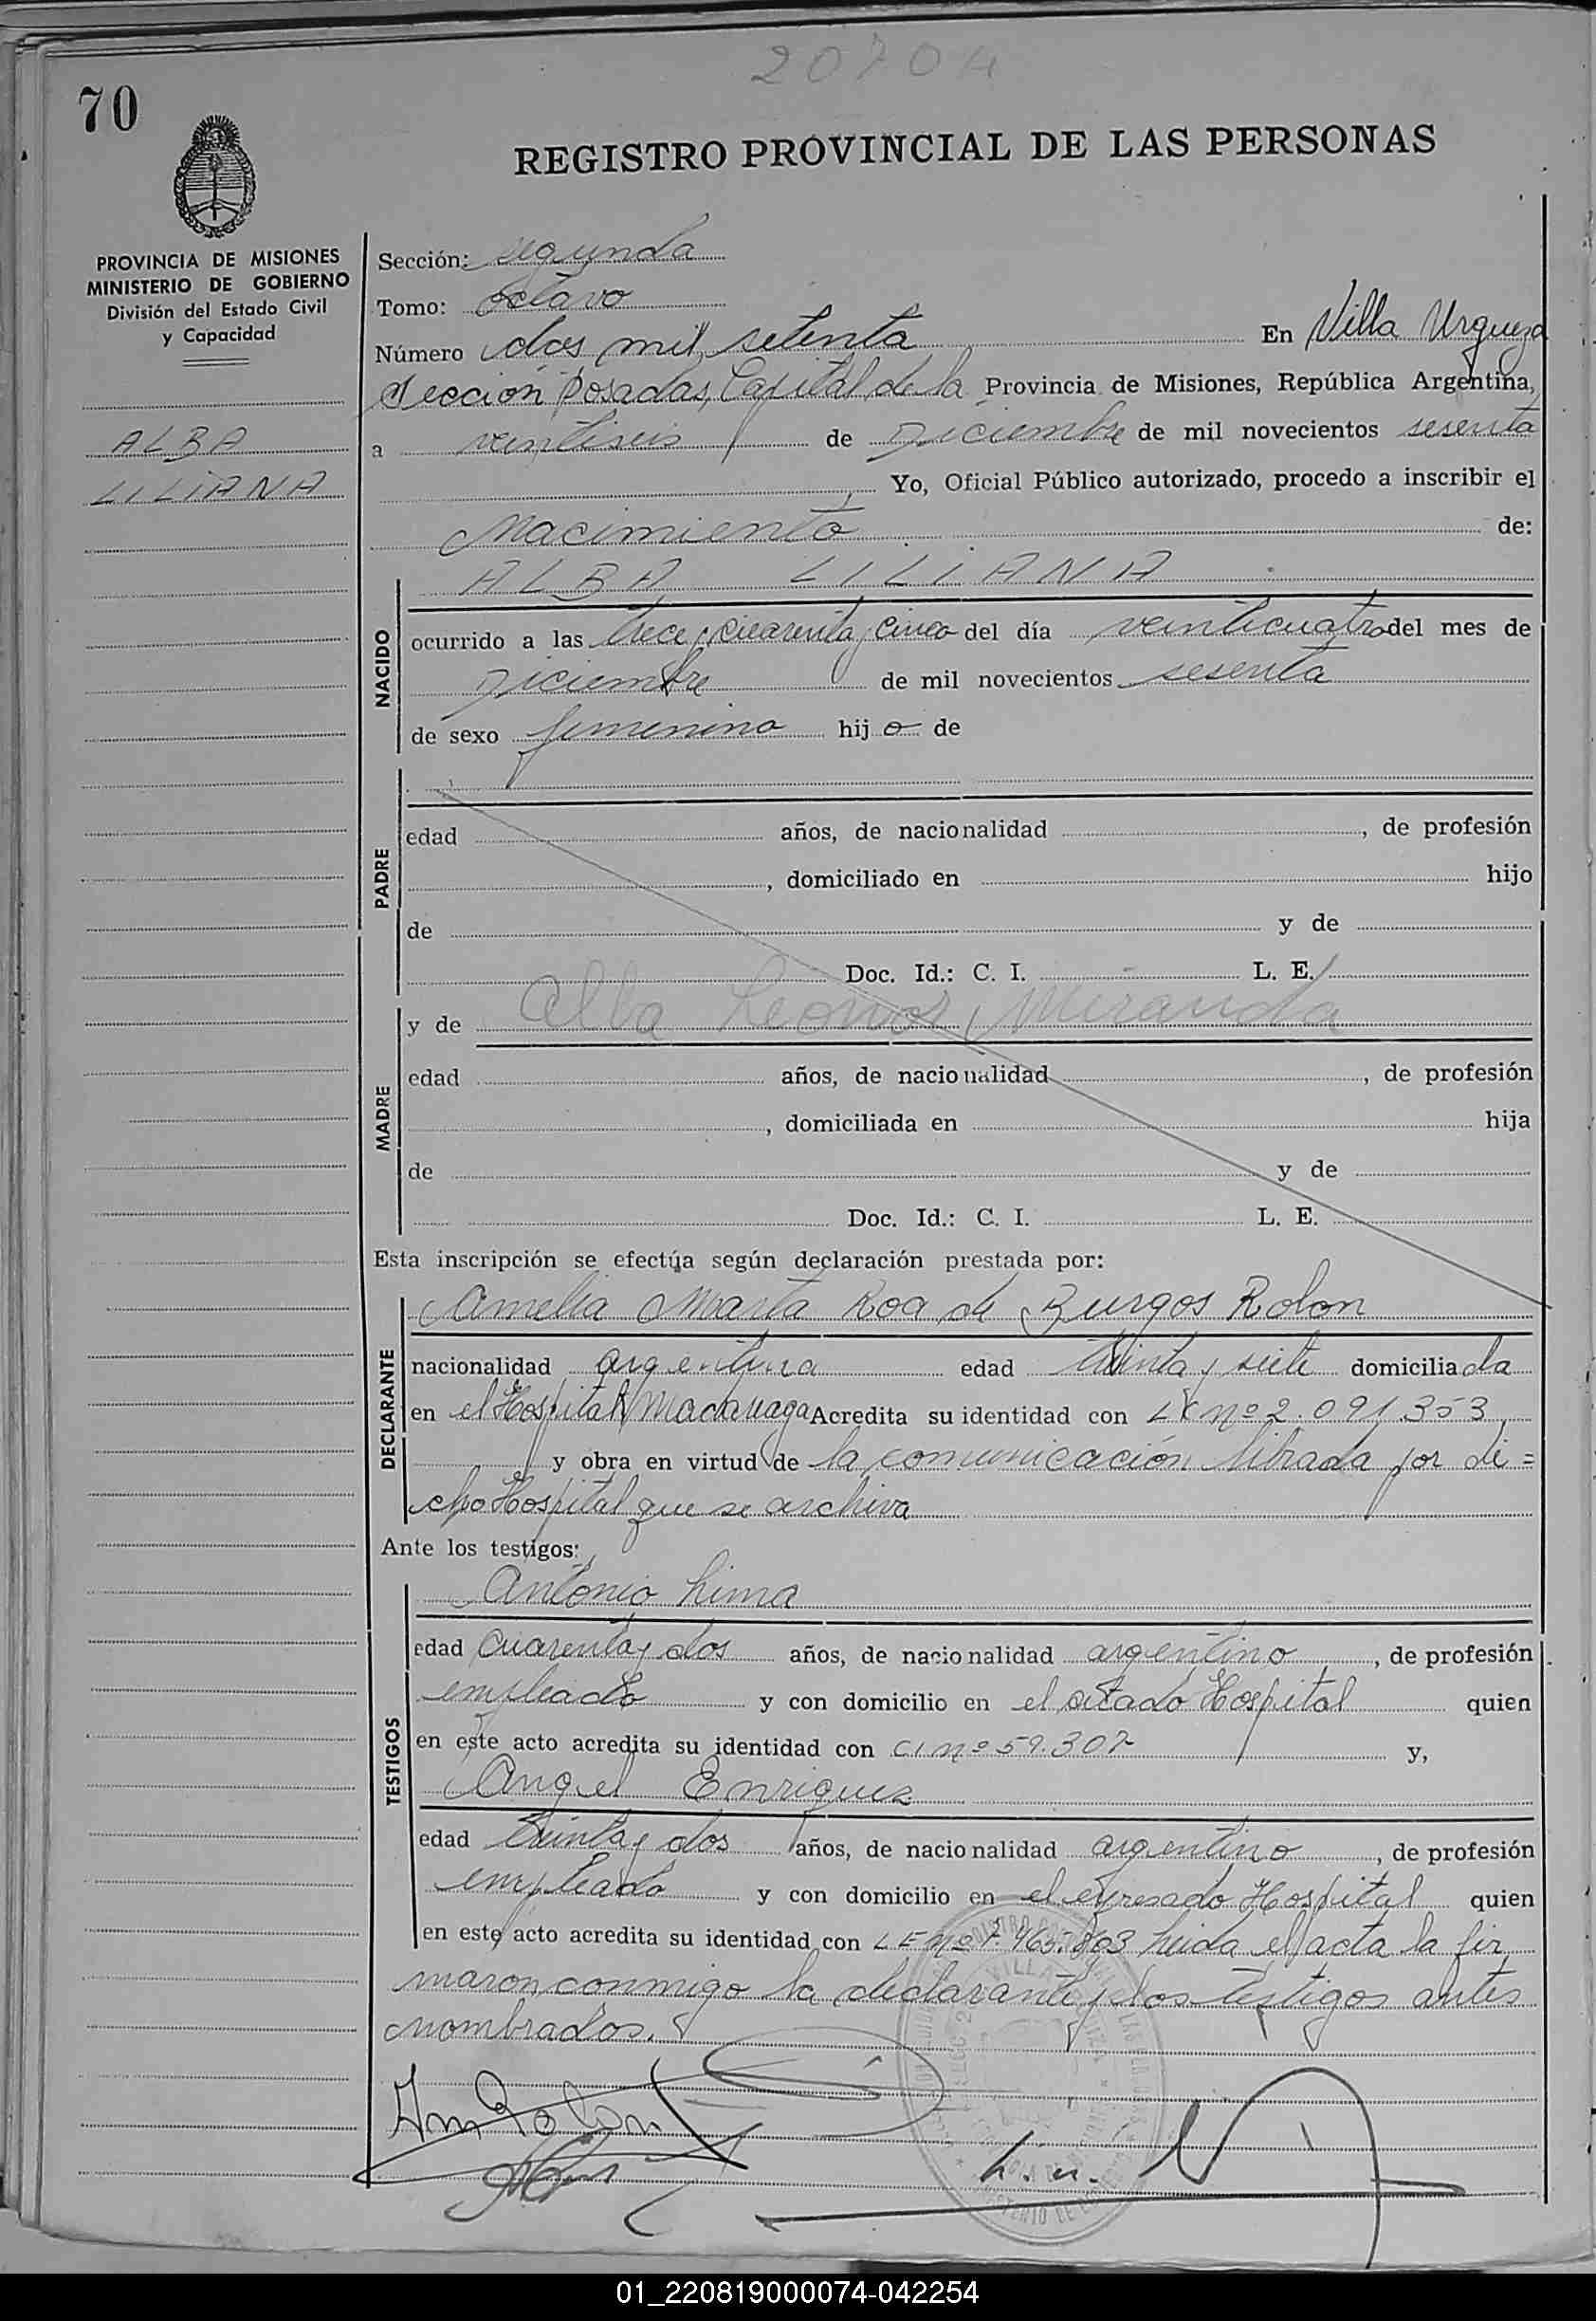 2070
70
REGISTRO PROVINCIAL DE LAS PERSONAS
PROVINCIA DE MISIONES
MINISTERIO DE GOBIERNO
División del Estado Civil
y Capacidad
ALBA
LILIANA
Sección: segunda
Tomo: octavo
Número dos mil setenta En Villa Urquiza
Sección Posadas, Capital de la Provincia de Misiones, República Argentina,
a veintiseis de Diciembre de mil novecientos sesenta
Yo, Oficial Público autorizado, procedo a inscribir el
Nacimiento de:
ALBA LILIANA
NACIDO
ocurrido a las trece y cuarenta y cinco del día veinticuatro del mes de
Diciembre de mil novecientos sesenta
de sexo femenino hijo de
PADRE
edad años, de nacionalidad , de profesión
, domiciliado en hijo
de y de
Doc. Id.: C. I. L. E.
MADRE
y de Alba Leonor Miranda
edad años, de nacionalidad , de profesión
, domiciliada en hija
de y de
Doc. Id.: C. I. L. E.
Esta inscripción se efectúa según declaración prestada por:
DECLARANTE
Amelia Marta Roa de Burgos Rolon
nacionalidad argentina edad treinta y siete domiciliada
en el Hospital R Madariaga Acredita su identidad con nº 2.091.353
y obra en virtud de la comunicación librada por di=
cho Hospital que se archiva
Ante los testigos:
TESTIGOS
Antonio Lima
edad cuarenta y dos años, de nacionalidad argentino, de profesión
empleado y con domicilio en el citado Hospital quien
en este acto acredita su identidad con CI nº 59.307 y,
Angel Enriquez
edad treinta y dos años, de nacionalidad argentino, de profesión
empleado y con domicilio en el expresado Hospital quien
en este acto acredita su identidad con LE nº 7.465.803 Leida el acta la fir
maron conmigo la declarante y los testigos antes
nombrados.
01_220819000074-042254